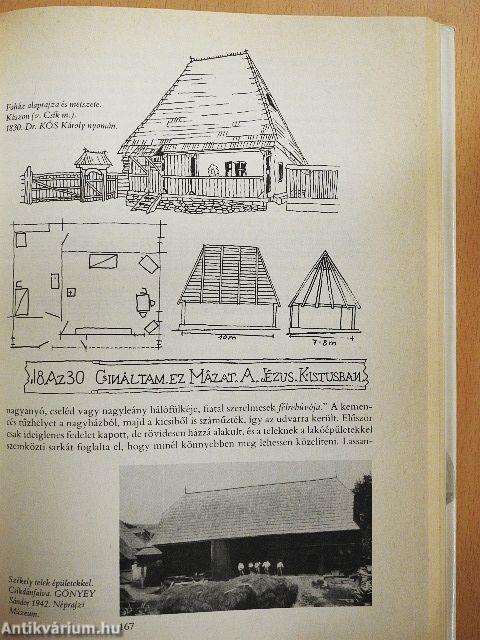 Faház alaprajza és metszete.
Kászon (v. Csík m.).
1830. Dr. KÓS Károly nyomán.
10 m
7-8 m
18 AZ 30 CSINÁLTAM. EZ MÂZAT. A. JÉZUS. KISTUSBAN
nagyanyó, cseléd vagy nagyleány hálófülkéje, fiatal szerelmesek félrebúvója." A kemen-
cés tűzhelyet a nagyházból, majd a kicsiből is száműzték, így az udvarra került. Először
csak ideiglenes fedelet kapott, de rövidesen házzá alakult, és a teleknek a lakóépületekkel
szemközti sarkát foglalta el, hogy minél könnyebben meg lehessen közelíteni. Lassan-
Székely telek épületekkel.
Csíkdánfalva. GÖNYEY
Sándor 1942. Néprajzi
Múzeum.
167
Antikvárium.hu